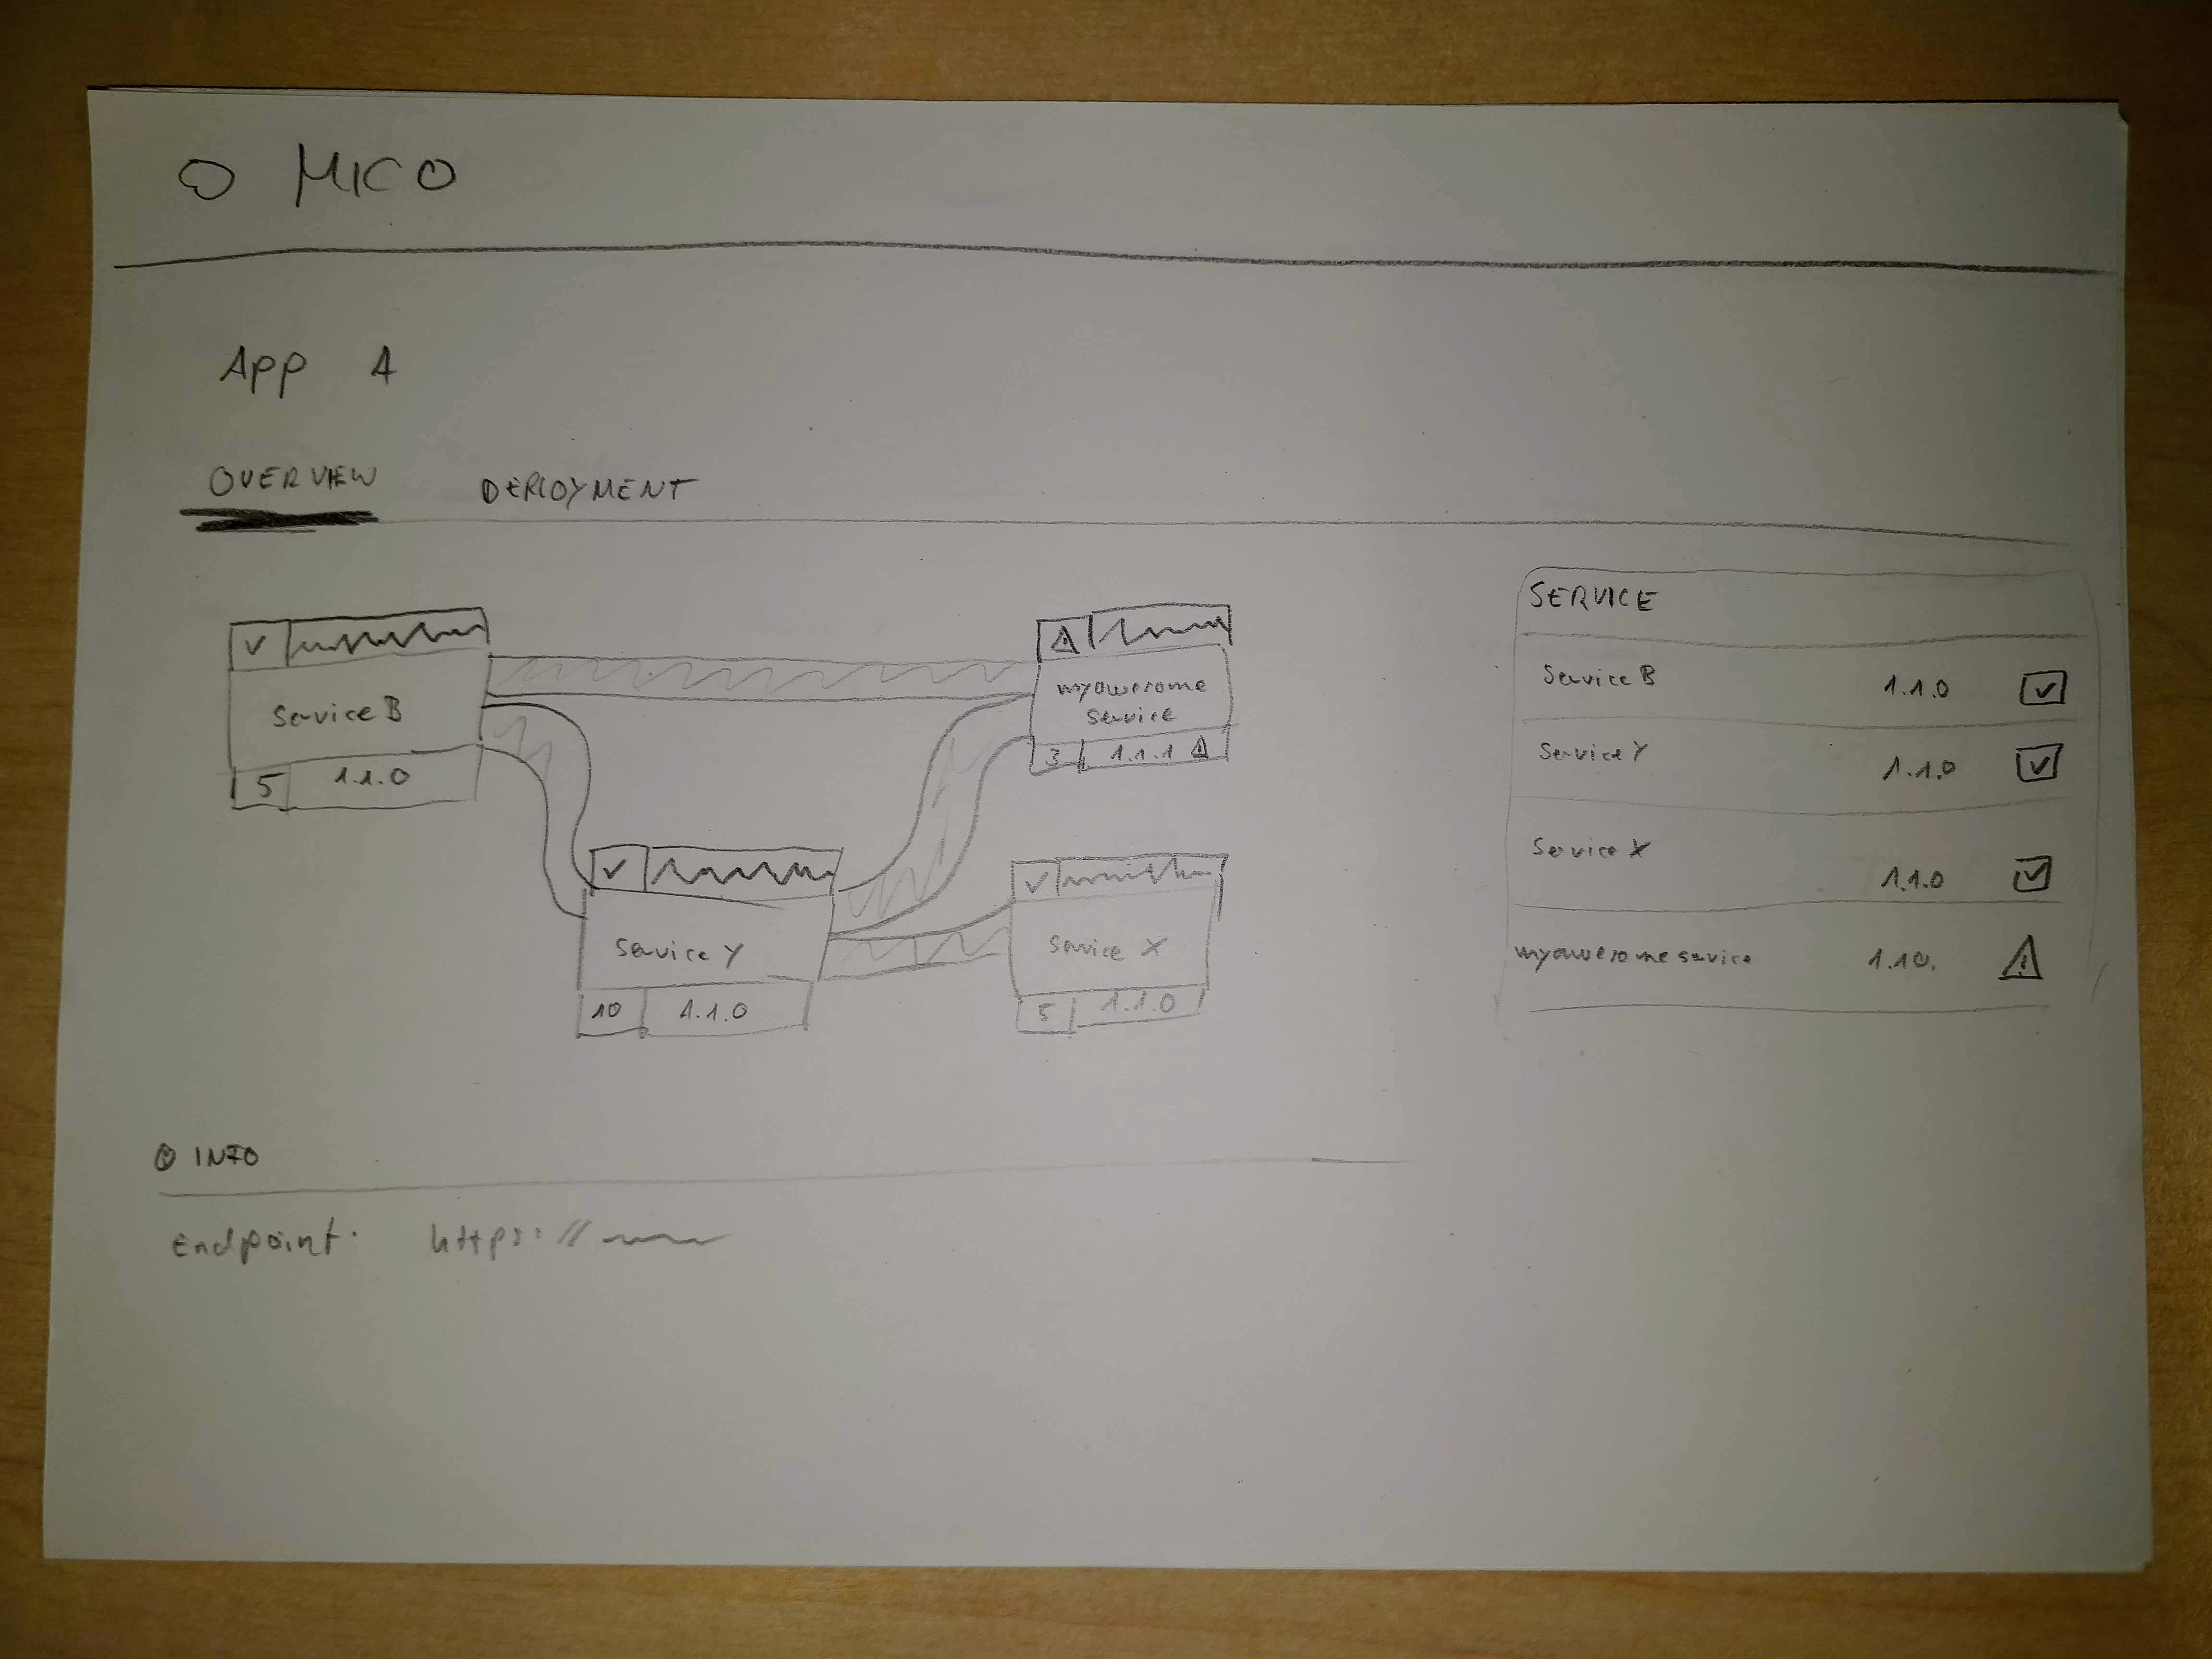 MICO
App A
OVERVIEW DEPLOYMENT
Service B
5 1.1.0
myawesome
service
3 1.1.1
Service Y
10 1.1.0
Service X
5 1.1.0
SERVICE
Service B 1.1.0
Service Y 1.1.0
Service X 1.1.0
myawesome service 1.10.
INFO
Endpoint: https://